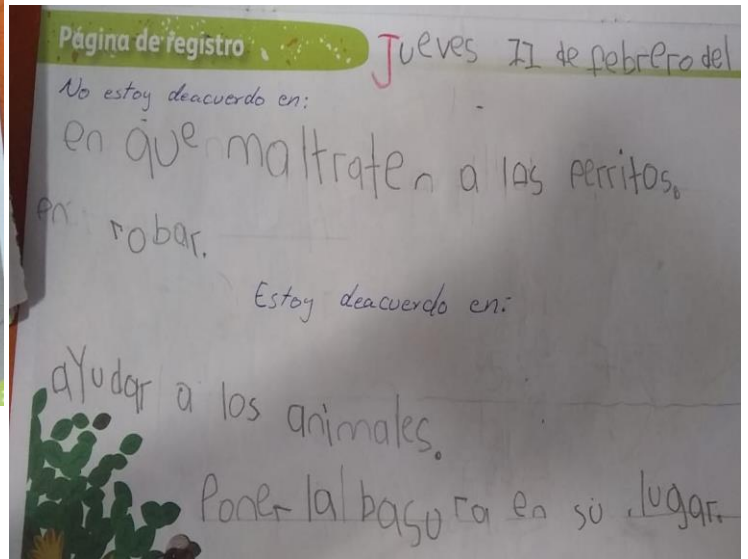 Página de registro
Jueves 11 de febrero del
No estoy deacuerdo en:
en que maltraten a los perritos.
en robar.
Estoy deacuerdo en:
ayudar a los animales.
Poner la basura en su lugar.